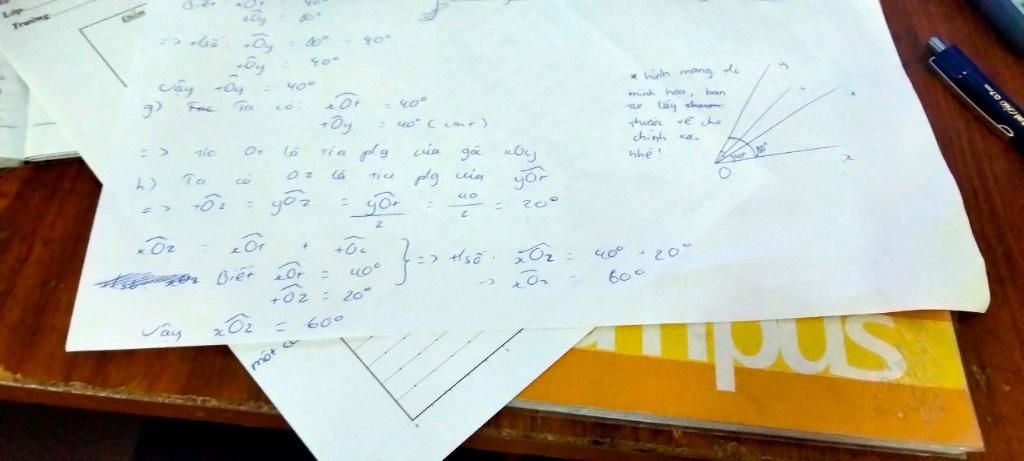 Lớp
Trường
Điểm
Biết xOt = 40°
xOy = 80°
=> +lsố: tOy = 80° - 40°
tOy = 40°
Vậy tOy = 40°
g) Ta có: xOt = 40°
tOy = 40° (cmt)
=> tia Ot là tia plg của góc xOy
h) Ta có Oz là tia plg của yOt
=> tOz = yOz = yOt/2 = 40/2 = 20°
xOz = xOt + tOz
Biết xOt = 40°
tOz = 20°
=> +lsố: xOz = 40° + 20°
-> xOz = 60°
Vậy xOz = 60°
* hình mang t/c
minh họa, bạn
lấy
thước vẽ cho
chính xác
nhé!
y
z
t
80°
40°
x
O
một
mpus
0.7mm